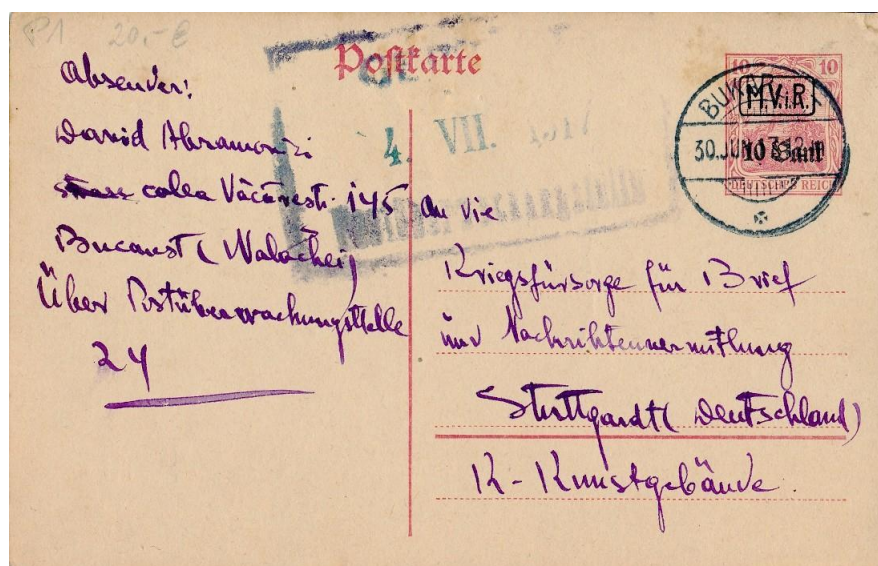 P1 20,- €
Postkarte
Absender:
David Abramovici
calea Văcărești 145
Bucarest (Walachei)
Über Postüberwachungsstelle
24
4. VII. 1917
10 10
M.V.i.R.
10 Bani
DEUTSCHES REICH
BUKAREST
30.JUN.17.12
An die
Kriegsfürsorge für Brief
und Nachrihtenvermitlung
Stuttgardt (Deutschland)
K-Kunstgebäude.